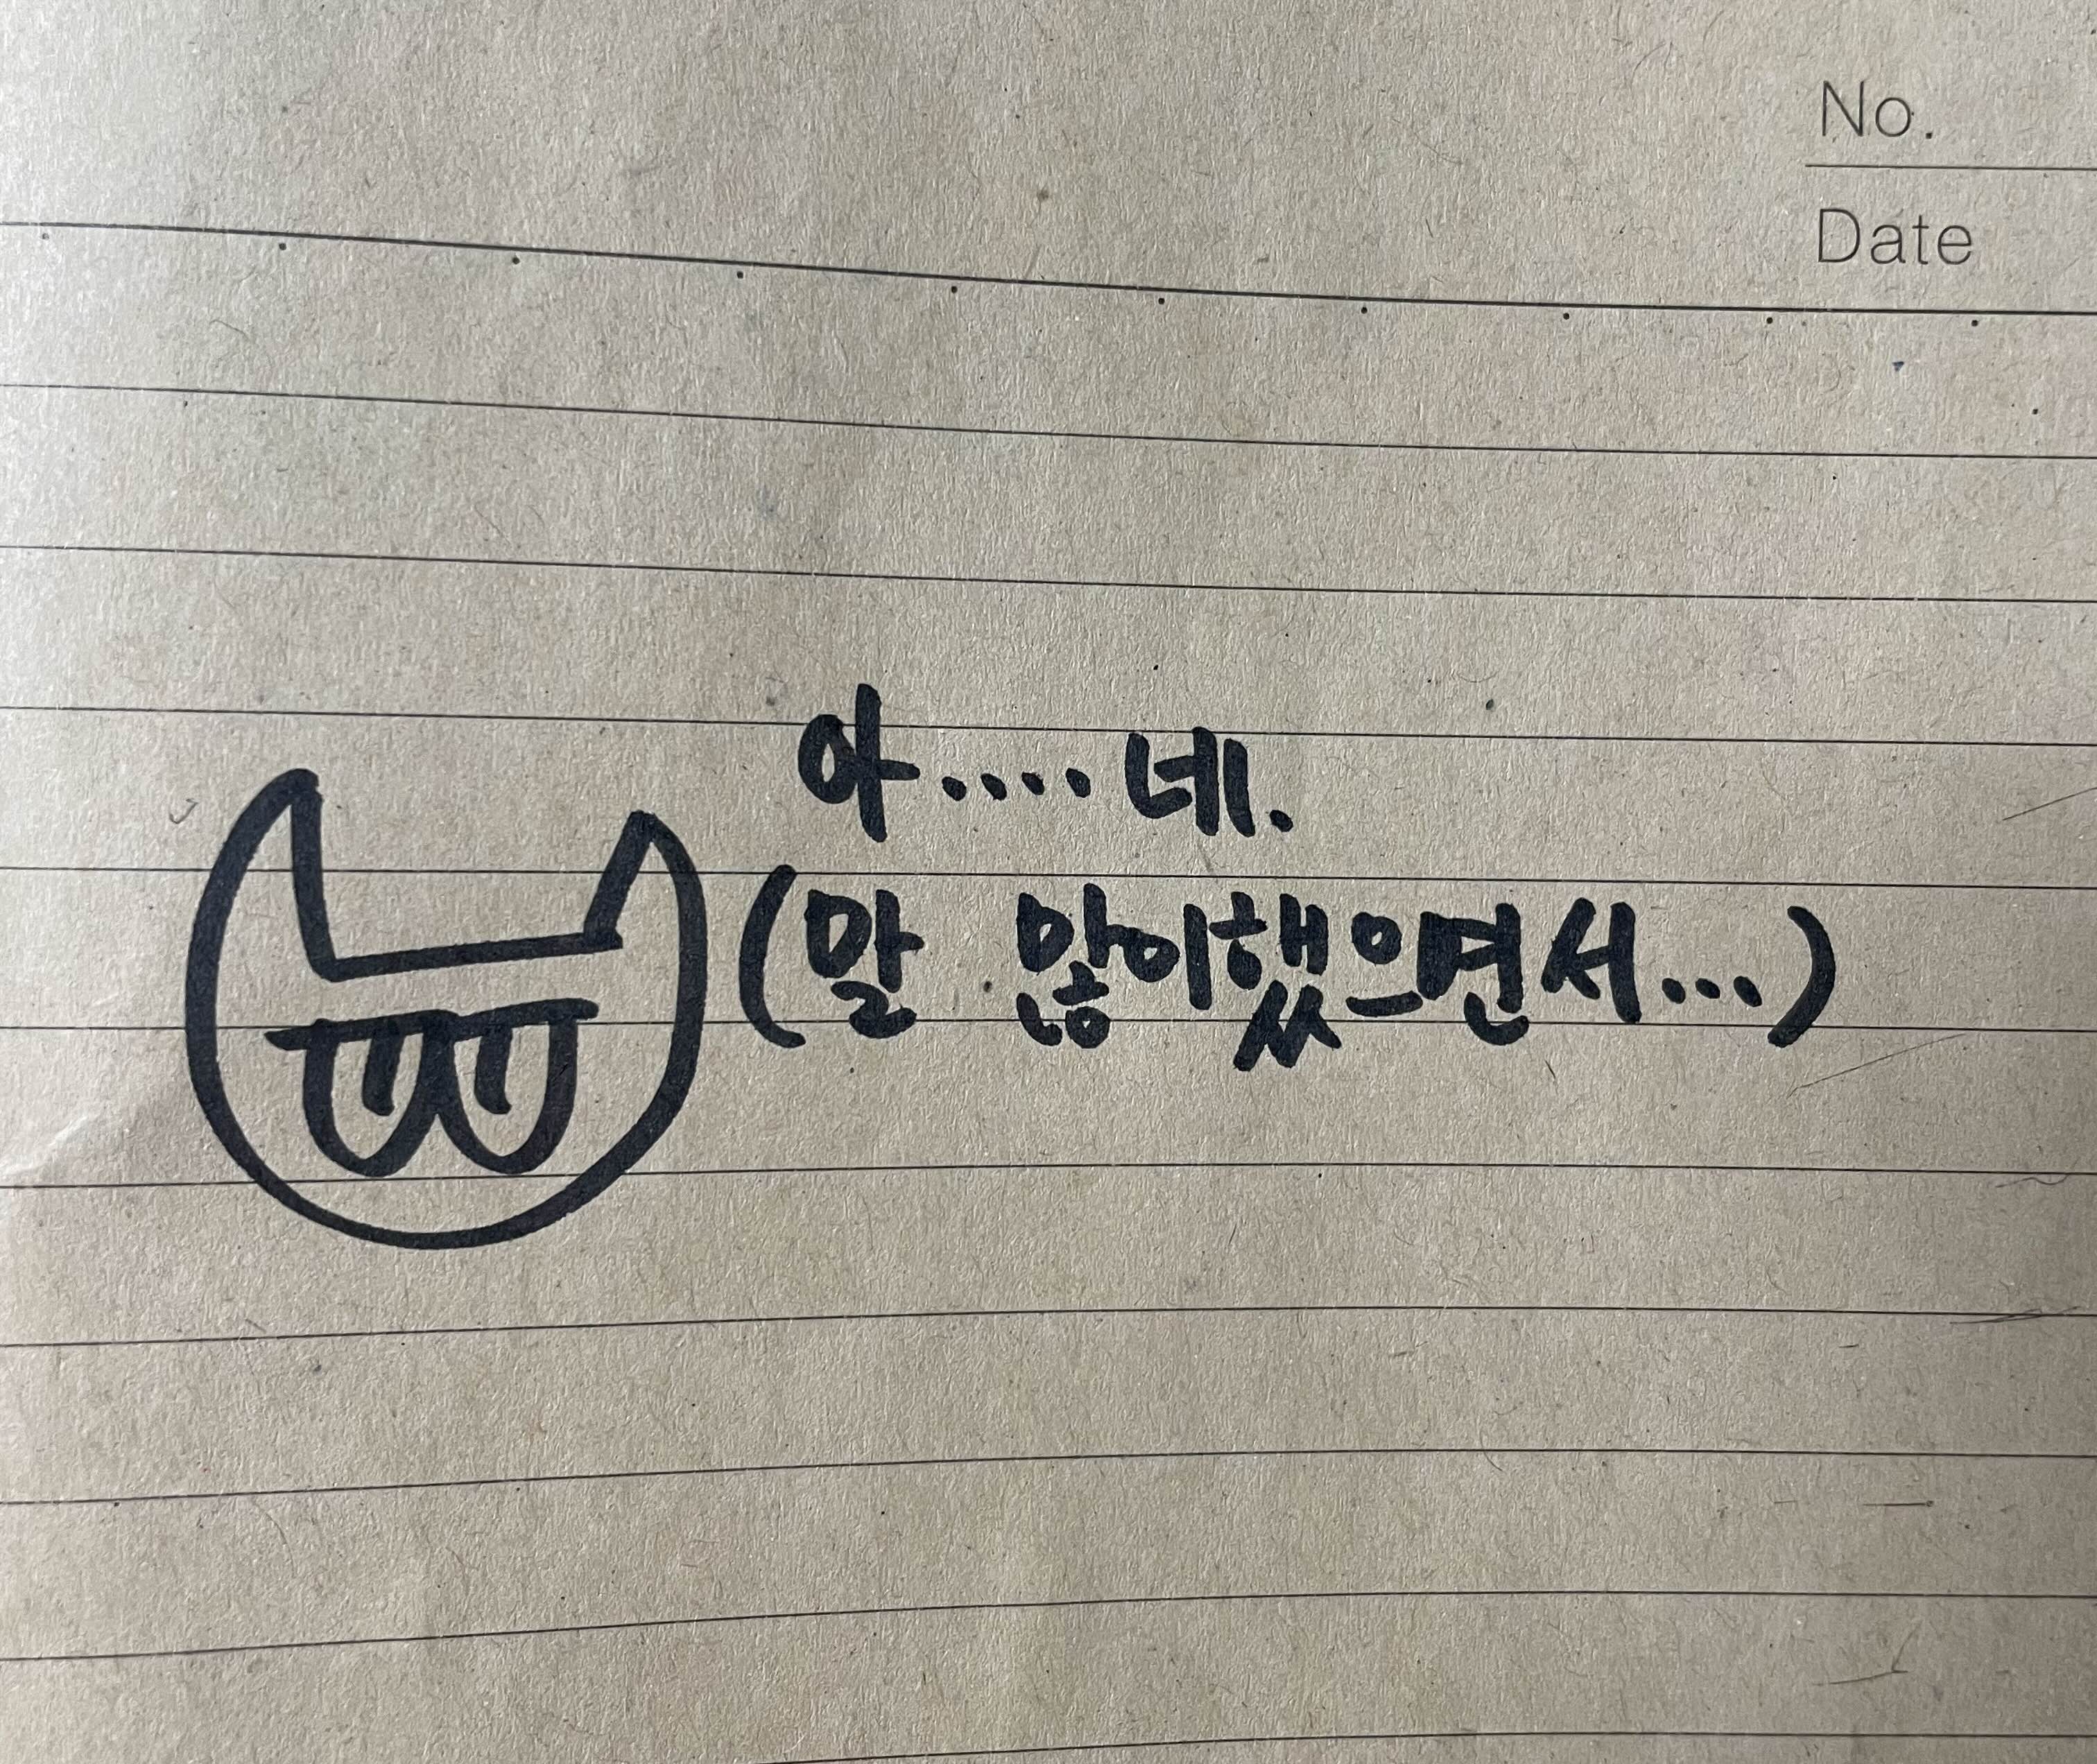 No.
Date
아....네.
(말 많이했으면서...)